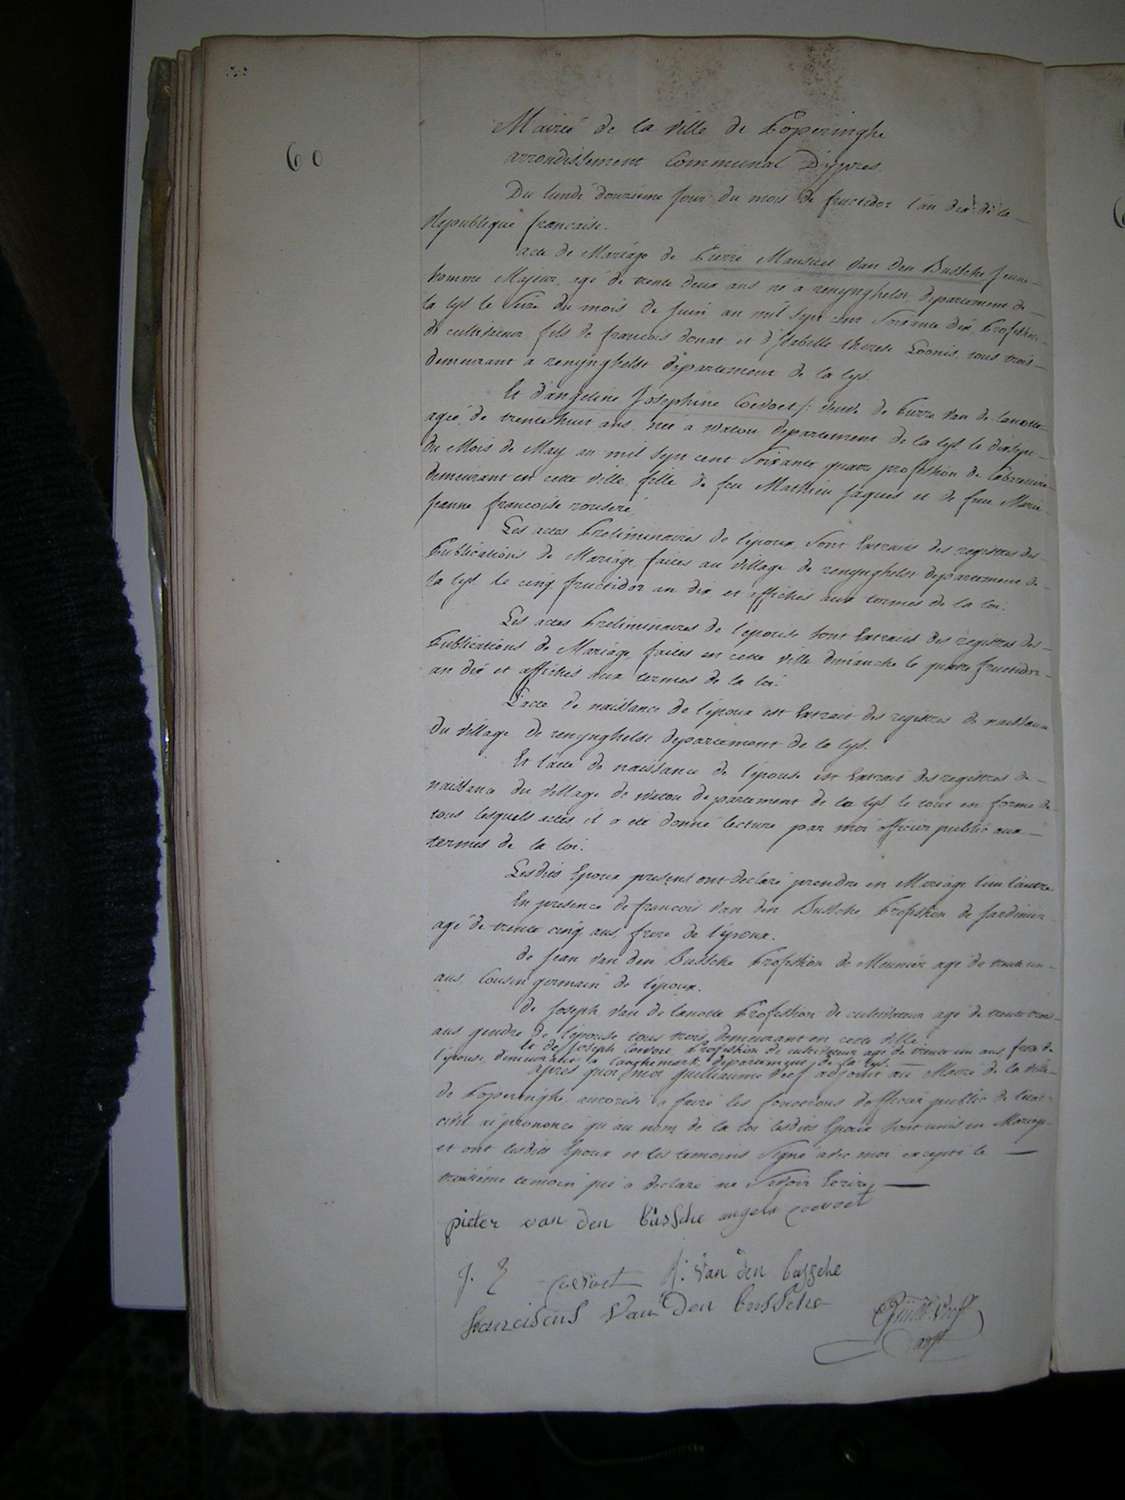 60
Mairie de la ville de Poperinghe
arrondissement Communal D'ypres
Du lundi douzieme jour du mois de fructidor l'an dix de la
Republique francaise.
acte de Mariage de Pierre Mansuet Van den Bussche jeune
homme Majeur, agé de trente deux ans né a renynghelst departement de
la lys le Seize du mois de Juin an mil Sept cent Soixante dix Profession
de cultivateur fils de francois donat et d'Isabelle therese Loonis, tous trois
demeurant a renynghelst département de la lys.
Et d'angeline Josephine Coevoet /: veuve de Pierre Van de Lanotte
ageé de trente huit ans, née a watou departement de la lys le dixsept
du Mois de May an mil Sept cent Soixante quatre profession de
demeurant en cette ville, fille de feu Mathieu Jaques et de feue Marie
jeanne francoise rouseré
Les actes Preliminaires de l'époux Sont Extraits des registres des
Publications de Mariage faites au village de renynghelst departement de
la lys le cinq fructidor an dix et affichés aux termes de la loi.
Les actes Preliminaires de l'épouse Sont Extraits des registres des
Publications de Mariage faites en cette ville dimanche le quatre fructidor
an dix et affichés aux termes de la loi.
L'acte de naissance de l'époux est Extrait des registres de naissance
du village de renynghelst departement de la lys.
Et l'acte de naissance de l'épouse est Extrait des registres de
naissance du village de watou departement de la lys le tout en forme de
tous lesquels actes il a eté donné lecture par moi officier public aux
termes de la loi.
Lesdits Epoux present ont declaré prendre en Mariage l'un l'autre
En presence de francois Van den Bussche Profession de Jardinier
agé de trente cinq ans, frere de l'époux.
de Jean Van den Bussche Profession de Meunier agé de trente un
ans Cousin germain de l'époux.
de Joseph Van de Lanotte Profession de cultivateur agé de trente trois
ans gendre de l'épouse tous trois demeurant en cette ville
Et de Joseph Coevoet Profession de cultivateur agé de trente un ans, frere de
l'épouse, demeurant a Langhemarck departement de la lys.
après quoi, moi Guilliaume Deef adjoint au Maire de la ville
de Poperinghe, autorisé a faire les fonctions d'officier public de l'etat
civil ai prononcé qu'au nom de la loi lesdits Epoux Sont unis en Mariage
et ont lesdits Epoux et les temoins Signé avec moi excepté le
troisiéme temoin qui a declaré ne Savoir Ecrire
pieter van den bussche angela coevoet
J. coevoet J. Van den bussche
franciscus Van Den bussche